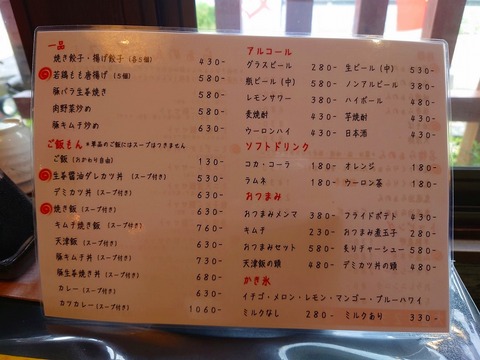 一品
焼き餃子・揚げ餃子（各5個） 430-
若鶏もも唐揚げ（5個） 580-
豚バラ生姜焼き 580-
肉野菜炒め 580-
豚キムチ炒め 630-
ご飯もん ＊単品のご飯にはスープはつきません
ご飯（おかわり自由） 130-
生姜醤油ダレカツ丼（スープ付き） 530-
デミカツ丼（スープ付き） 630-
焼き飯（スープ付き） 630-
キムチ焼き飯（スープ付き） 760-
天津飯（スープ付き） 630-
豚キムチ丼（スープ付き） 730-
豚生姜焼き丼（スープ付き） 680-
カレー（スープ付き） 630-
カツカレー（スープ付き） 1060-
アルコール
グラスビール 280- 生ビール（中） 530-
瓶ビール（中） 580- ノンアルビール 380-
レモンサワー 380- ハイボール 480-
麦焼酎 430- 芋焼酎 430-
ウーロンハイ 430- 日本酒 430-
ソフトドリンク
コカ・コーラ 180- オレンジ 180-
ラムネ 180- ウーロン茶 180-
おつまみ
おつまみメンマ 380- フライドポテト 430-
キムチ 230- おつまみ煮玉子 280-
おつまみセット 580- 炙りチャーシュー 580-
天津飯の頭 480- デミカツ丼の頭 480-
かき氷
イチゴ・メロン・レモン・マンゴー・ブルーハワイ
ミルクなし 280- ミルクあり 330-